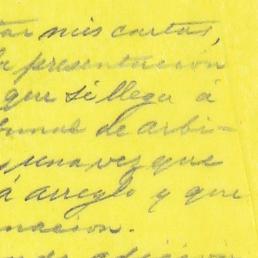 tar mis cartas,
la presentación
que si llega á
bunal de arbi-
una vez que
á arreglo y que
nación.